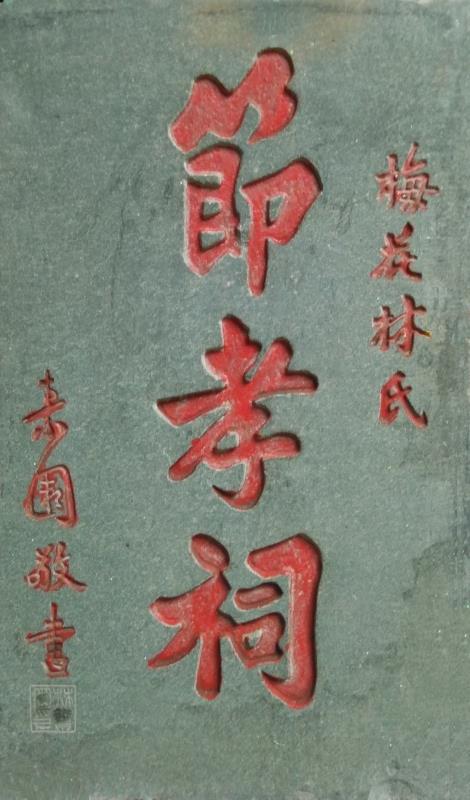 梅花林氏
節孝祠
素園敬書